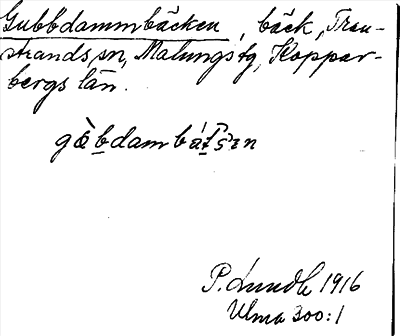 Gubbdammbäcken, bäck, Tran-
strands sn, Malungs tg, Koppar-
bergs län.
P. Lundh 1916
Ulma 300:1